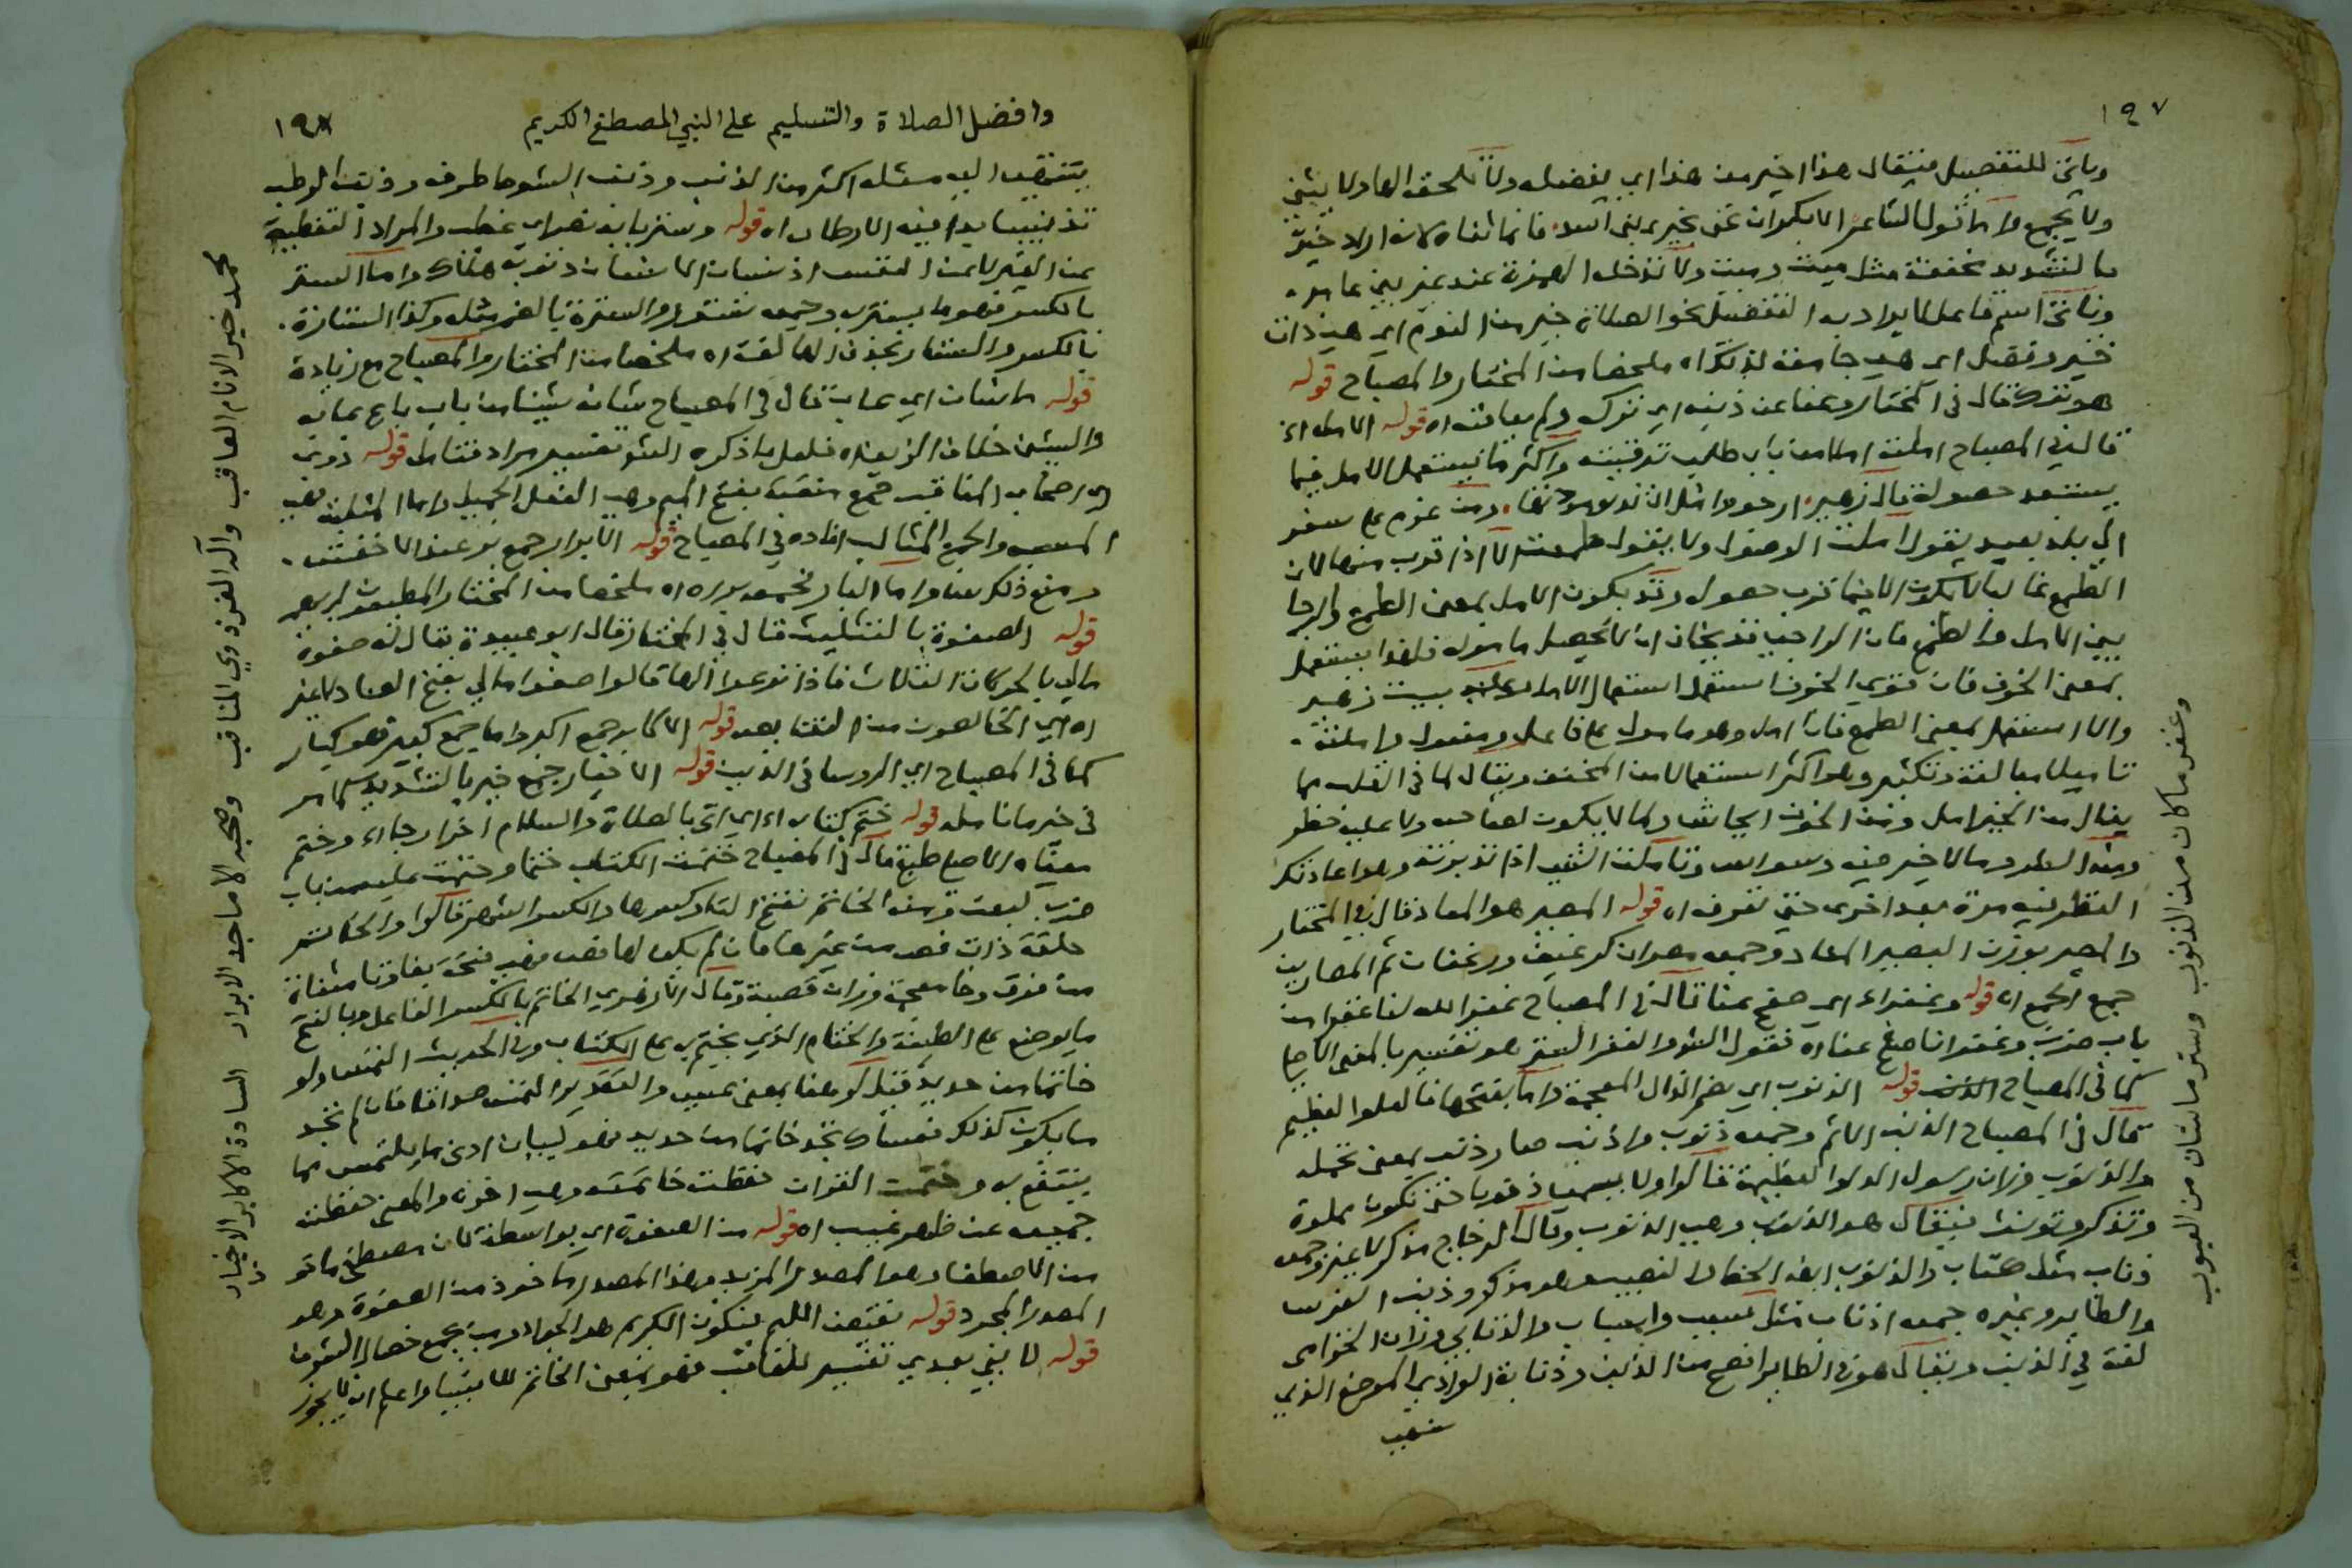 ١٩٧
وياتى للتفصيل فيقال هذا خير من هذا اي يفضله ولا تلحقه الها ولا يثنى
ولا يجمع واما قول الشاعر الا بكر الناعى بخيرى بنى اسد فانما ثناه لانه اراد خير
بالتشديد مخففة مثل ميت وميت ولا تدخله الهمزة عند غير بنى عامر
وياتى اسم فاعل لا يراد به التفضيل نحو الصلاة خير من النوم اى هي ذات
خير وفضل اى هي جامعة لذلك اه ملخصا من المختار والمصباح قوله
هو ترك قال فى المختار وعفا عن ذنبه اى تركه ولم يعاقبه اه قوله الامل اه
قال فى المصباح املته املا من باب طلب ترقبته واكثر ما يستعمل الامل فيما
يستبعد حصوله قال زهير ارجو وامل ان تدنو مودتها ومن عزم على سفر
الى بلد بعيد يقول املت الوصول ولا يقول طمعت الا اذا قرب منها لان
الطمع غالبا لا يكون الا فيما قرب حصوله وقد يكون الامل بمعنى الطمع والرجا
بين الامل والطمع فان الراجى قد يخاف ان لا يحصل مأموله فلهذا يستعمل
بمعنى الخوف فان قوي الخوف استعمل استعمال الامل وعليه بيت زهير
والا استعمل بمعنى الطمع فانا امل وهو مامول على فاعل ومفعول واملته
تاميلا مبالغة وتكثير وهو اكثر استعمالا من المخفف ويقال لما فى القلب مما
ينال من الخير امل ومن الخوف ايجاس ولما لا يكون لصاحبه ولا عليه خطر
ومن الشر وما لا خير فيه وسواس وتاملت الشئ اذا تدبرته وهو اعادتك
النظر فيه مرة بعد اخرى حتى تعرفه اه قوله المصير هو المعاد قال فى المختار
والمصير بوزن البصير المعاد وجمعه مصران كرغيف ورغفان ثم المصارين
جمع الجمع اه قوله وغفر اه اي صفح عنا قال فى المصباح غفر الله لنا غفرا من
باب ضرب وغفرانا صفح عنا اه فقول الشو الغفر الستر هو تفسير بالمعنى الاصلى
كما فى المصباح قوله الذنوب اى بضم الذال المعجمة واما بفتحها فالدلو العظيم
قال فى المصباح الذنب الاثم وجمعه ذنوب واذنب صار ذا ذنب بمعنى تحمله
والذنوب وزان رسول الدلو العظيمة قالوا ولا يسمى ذنوبا حتى تكون مملوة
وتذكر وتونث فيقال هو الذنوب وهي الذنوب وقال الزجاج مذكر لا غير وجمعه
ذناب مثل كتاب والذنوب ايضا الحظ والنصيب هو مذكر وذنب الفرس
والطاير وغيره جمعه اذناب مثل سبب واسباب والذنابى وزان الخزامى
لغة فى الذنب ويقال هو فى الطاير افصح من الذنب وذنابة الوادى الموضع الذي
ينتهى
وغفر ما كان من الذنوب وستر ما شان من العيوب
وافضل الصلاة والتسليم على النبي المصطفى الكريم
١٩٨
ينتهى اليه مسيله اكثر من الذنب وذنب السوط طرفه وذنب الرطب
تذنيبا بدا فيه الارطاب اه قوله وستر بابه نصر اى غطى والمراد التغطية
عن الغير لا عن النفس اذ نسيان الانسان ذنوبه هلاك واما الستر
بالكسر فهو ما يستتر به وجمعه ستور والسترة بالضم مثله وكذا الستارة
بالكسر والستار بحذف الها لغة اه ملخصا من المختار والمصباح مع زيادة
قوله ما شان اي عاب قال فى المصباح شانه شينا من باب باع عابه
والشين خلاف الزين اه فلعل ما ذكره الشو تفسير مراد فتامل قوله ذوى
اى اصحاب المناقب جمع منقبة بفتح الميم وهي الفعل الجميل واما المثلبة فهي
المسبة والجمع المثالب افاده فى المصباح قوله الابرار جمع بر عند الاخفش
ومنع ذلك غيره واما البار فجمعه بررة اه ملخصا من المختار
قوله الصفوة بالتثليث قال فى المختار قال ابو عبيدة يقال له صفوة
مالى بالحركات الثلاث فاذا نزعوا الها قالوا صفو مالي بفتح الصاد لا غير
اه اي الخالصون من النقايص قوله الاكابر جمع اكبر واما جمع كبير فهو كبار
كما فى المصباح اي الروسا فى الدين قوله الاخيار جمع خير بالتشديد كما مر
فى خير ما نامله قوله ختم كتابه اه اي اتى بالصلاة والسلام اخرا رجاء وختم
معناه الاصلى طبع قال فى المصباح ختمت الكتاب ختما وختمت عليه من باب
ضرب طبعت ومنه الخاتم بفتح التا وكسرها والكسر اشهر قالوا والخاتم
حلقة ذات فص من غيرها فان لم يكن لها فص فهي فتخة بفا وتا مثناة
من فوق وخا معجمة وزان قصبة وقال الازهري الخاتم بالكسر الفاعل وبالفتح
ما يوضع على الطينة والختام الذي يختم به على الكتاب وفى الحديث التمس ولو
خاتما من حديد قيل لو هنا بمعنى عسى والتقدير التمس صداقا فان لم تجد
ما يكون كذلك فعساك تجد خاتما من حديد فهو لبيان ادنى ما يلتمس مما
ينتفع به وختمت القرآن حفظت خاتمته وهي اخره والمعنى حفظته
جميعه عن ظهر غيب اه قوله من الصفوة اي بواسطة لان مصطفى ماخوذ
من الاصطفا وهو المصدر المزيد وهذا المصدر ماخوذ من الصفوة وهو
المصدر المجرد قوله نقيض اللئيم فيكون الكريم هو الجواد ومن يجمع خصال الشرف
قوله لا نبي بعدي تفسير للعاقب فهو بمعنى الخاتم للانبيا واعلم انه لا يجوز
محمد خير الانام العاقب وآله الغر ذوي المناقب وصحبه الاماجد الابرار السادة الاكابر الاخيار